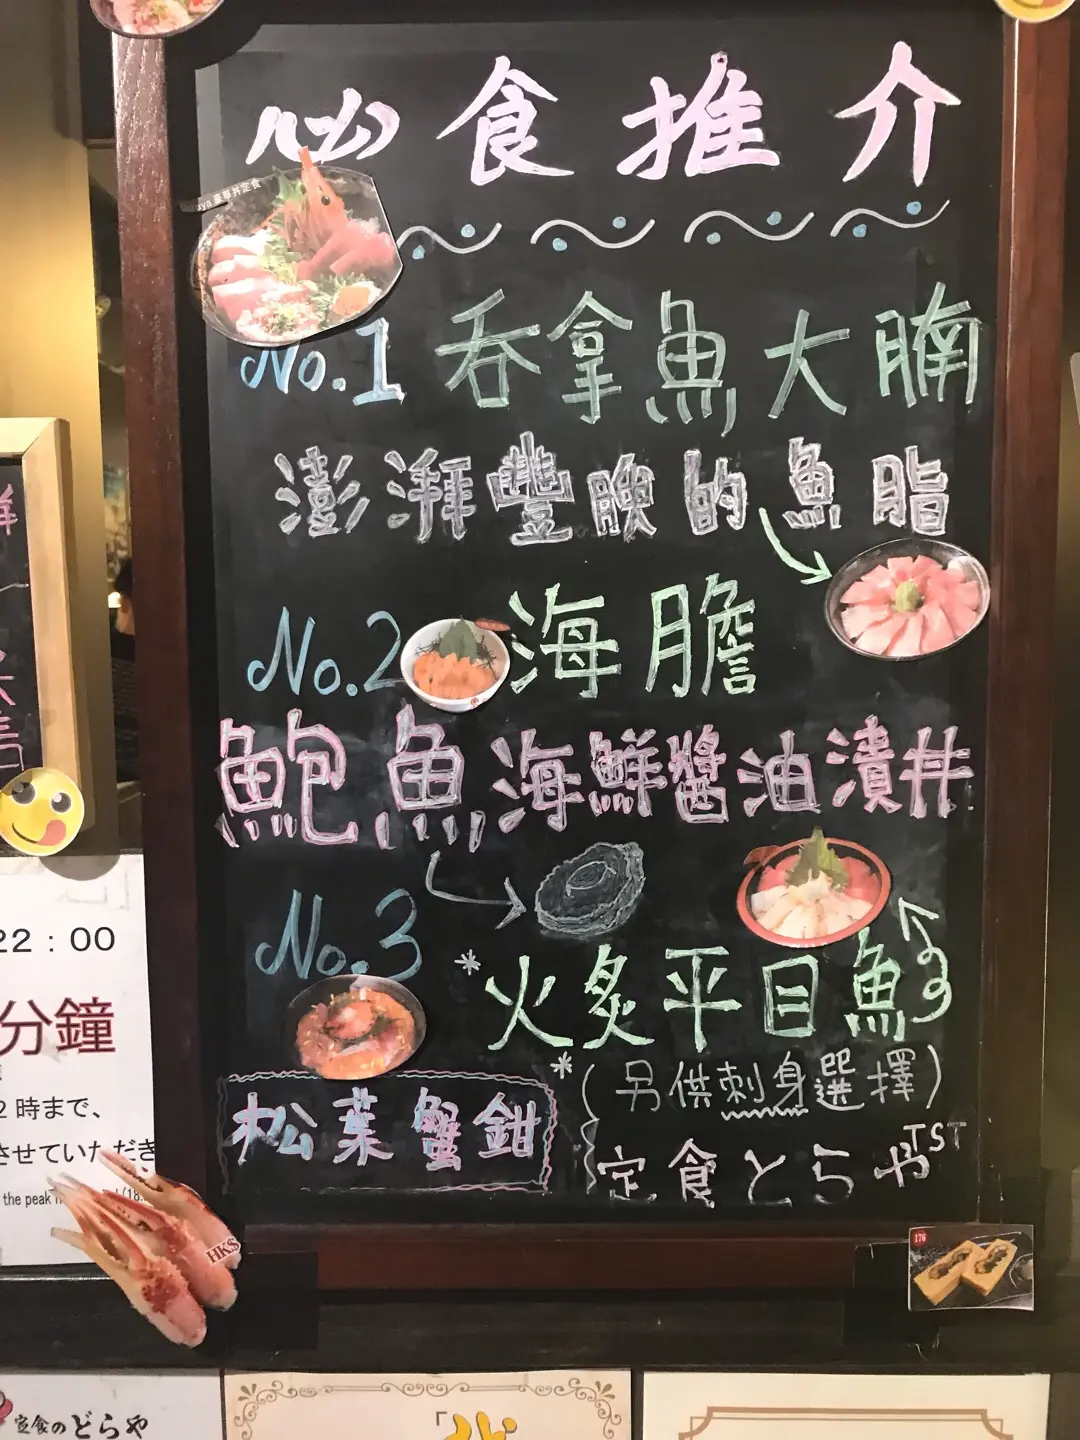 必食推介
豪華丼定食
No.1 吞拿魚大腩
澎湃豐腴的魚脂
No.2 海膽
鮑魚海鮮醬油漬丼
No.3 *火炙平目魚
*(另供刺身選擇)
松葉蟹鉗
定食とらや TST
22：00
分鐘
2 時まで、
させていただき
the peak
HK$
176
定食のどらや